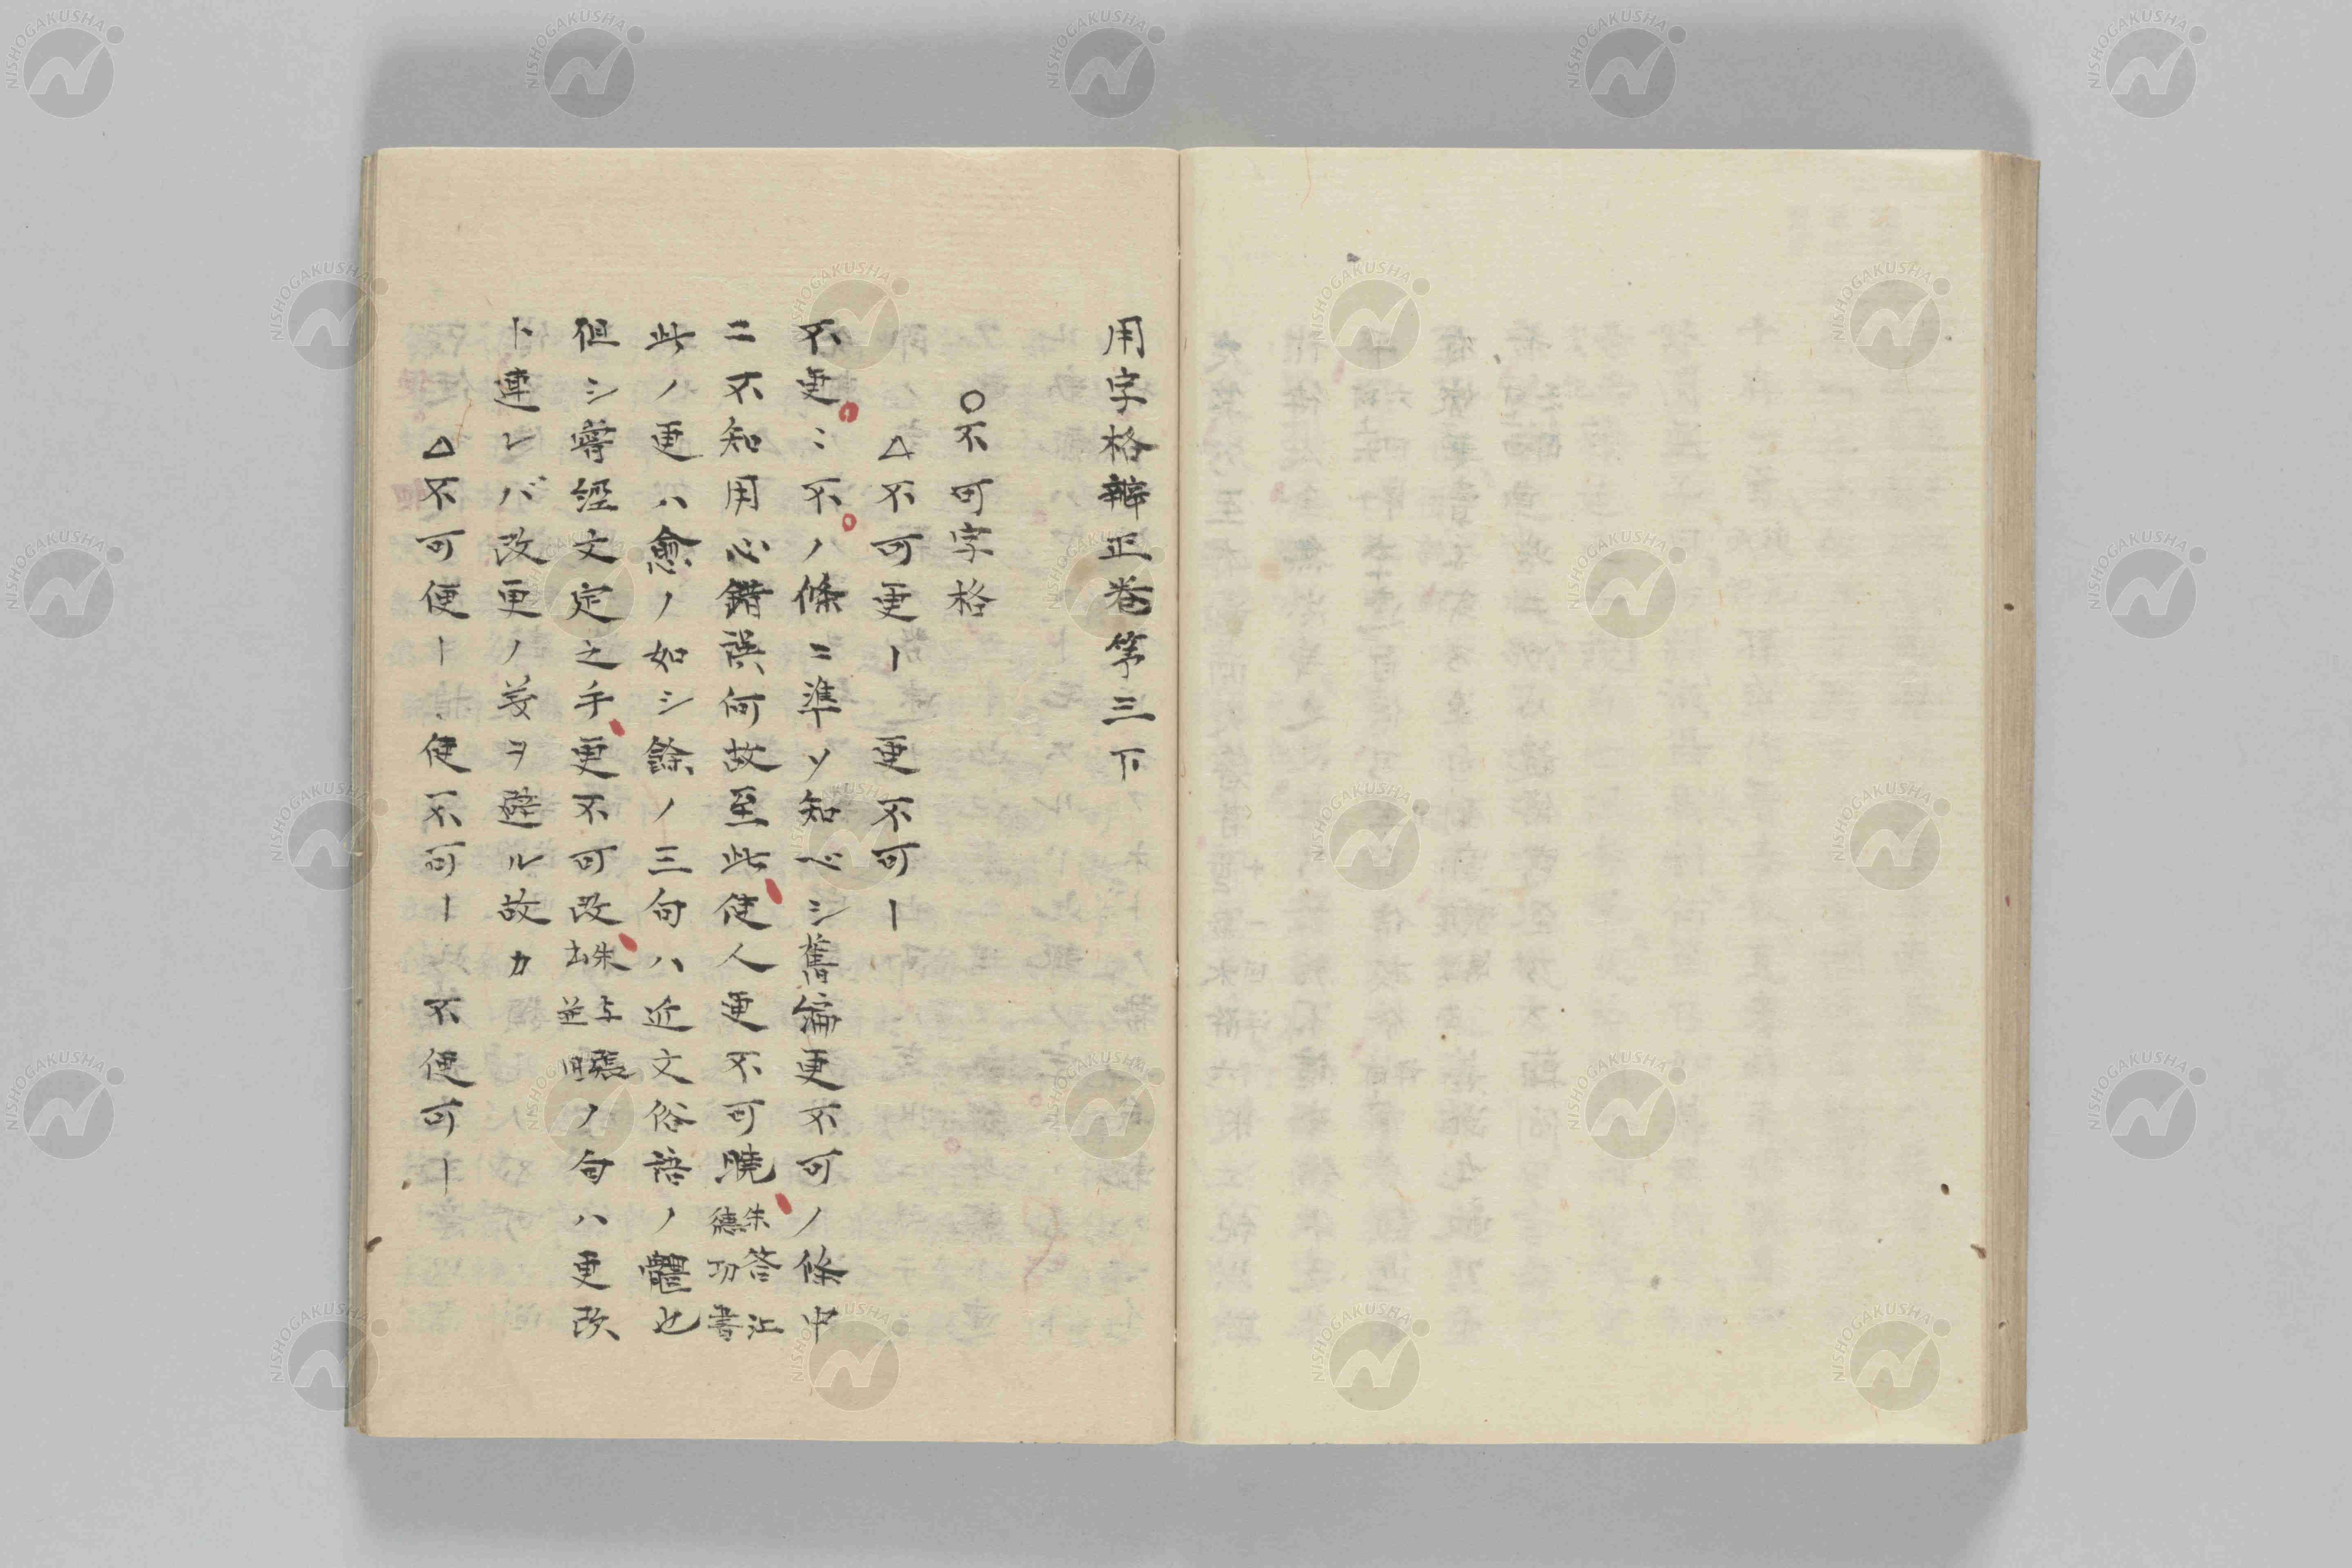 用字格辨正卷第三下
○不可字格
△不可更〡 更不可〡
不更ニ不ノ條ニ準ソ知ベシ舊編更不可ノ條中
ニ不知用心錯誤何故至此使人更不可曉朱答江德功書
此ノ更ハ愈ノ如シ餘ノ三句ハ近文俗語ノ體也
但シ尊經文定之手更不可改朱与張ノ句ハ更改
ト連レバ改更ノ義ヲ避ル故カ
△不可便〡 便不可〡 不便可〡
NISHOGAKUSHA